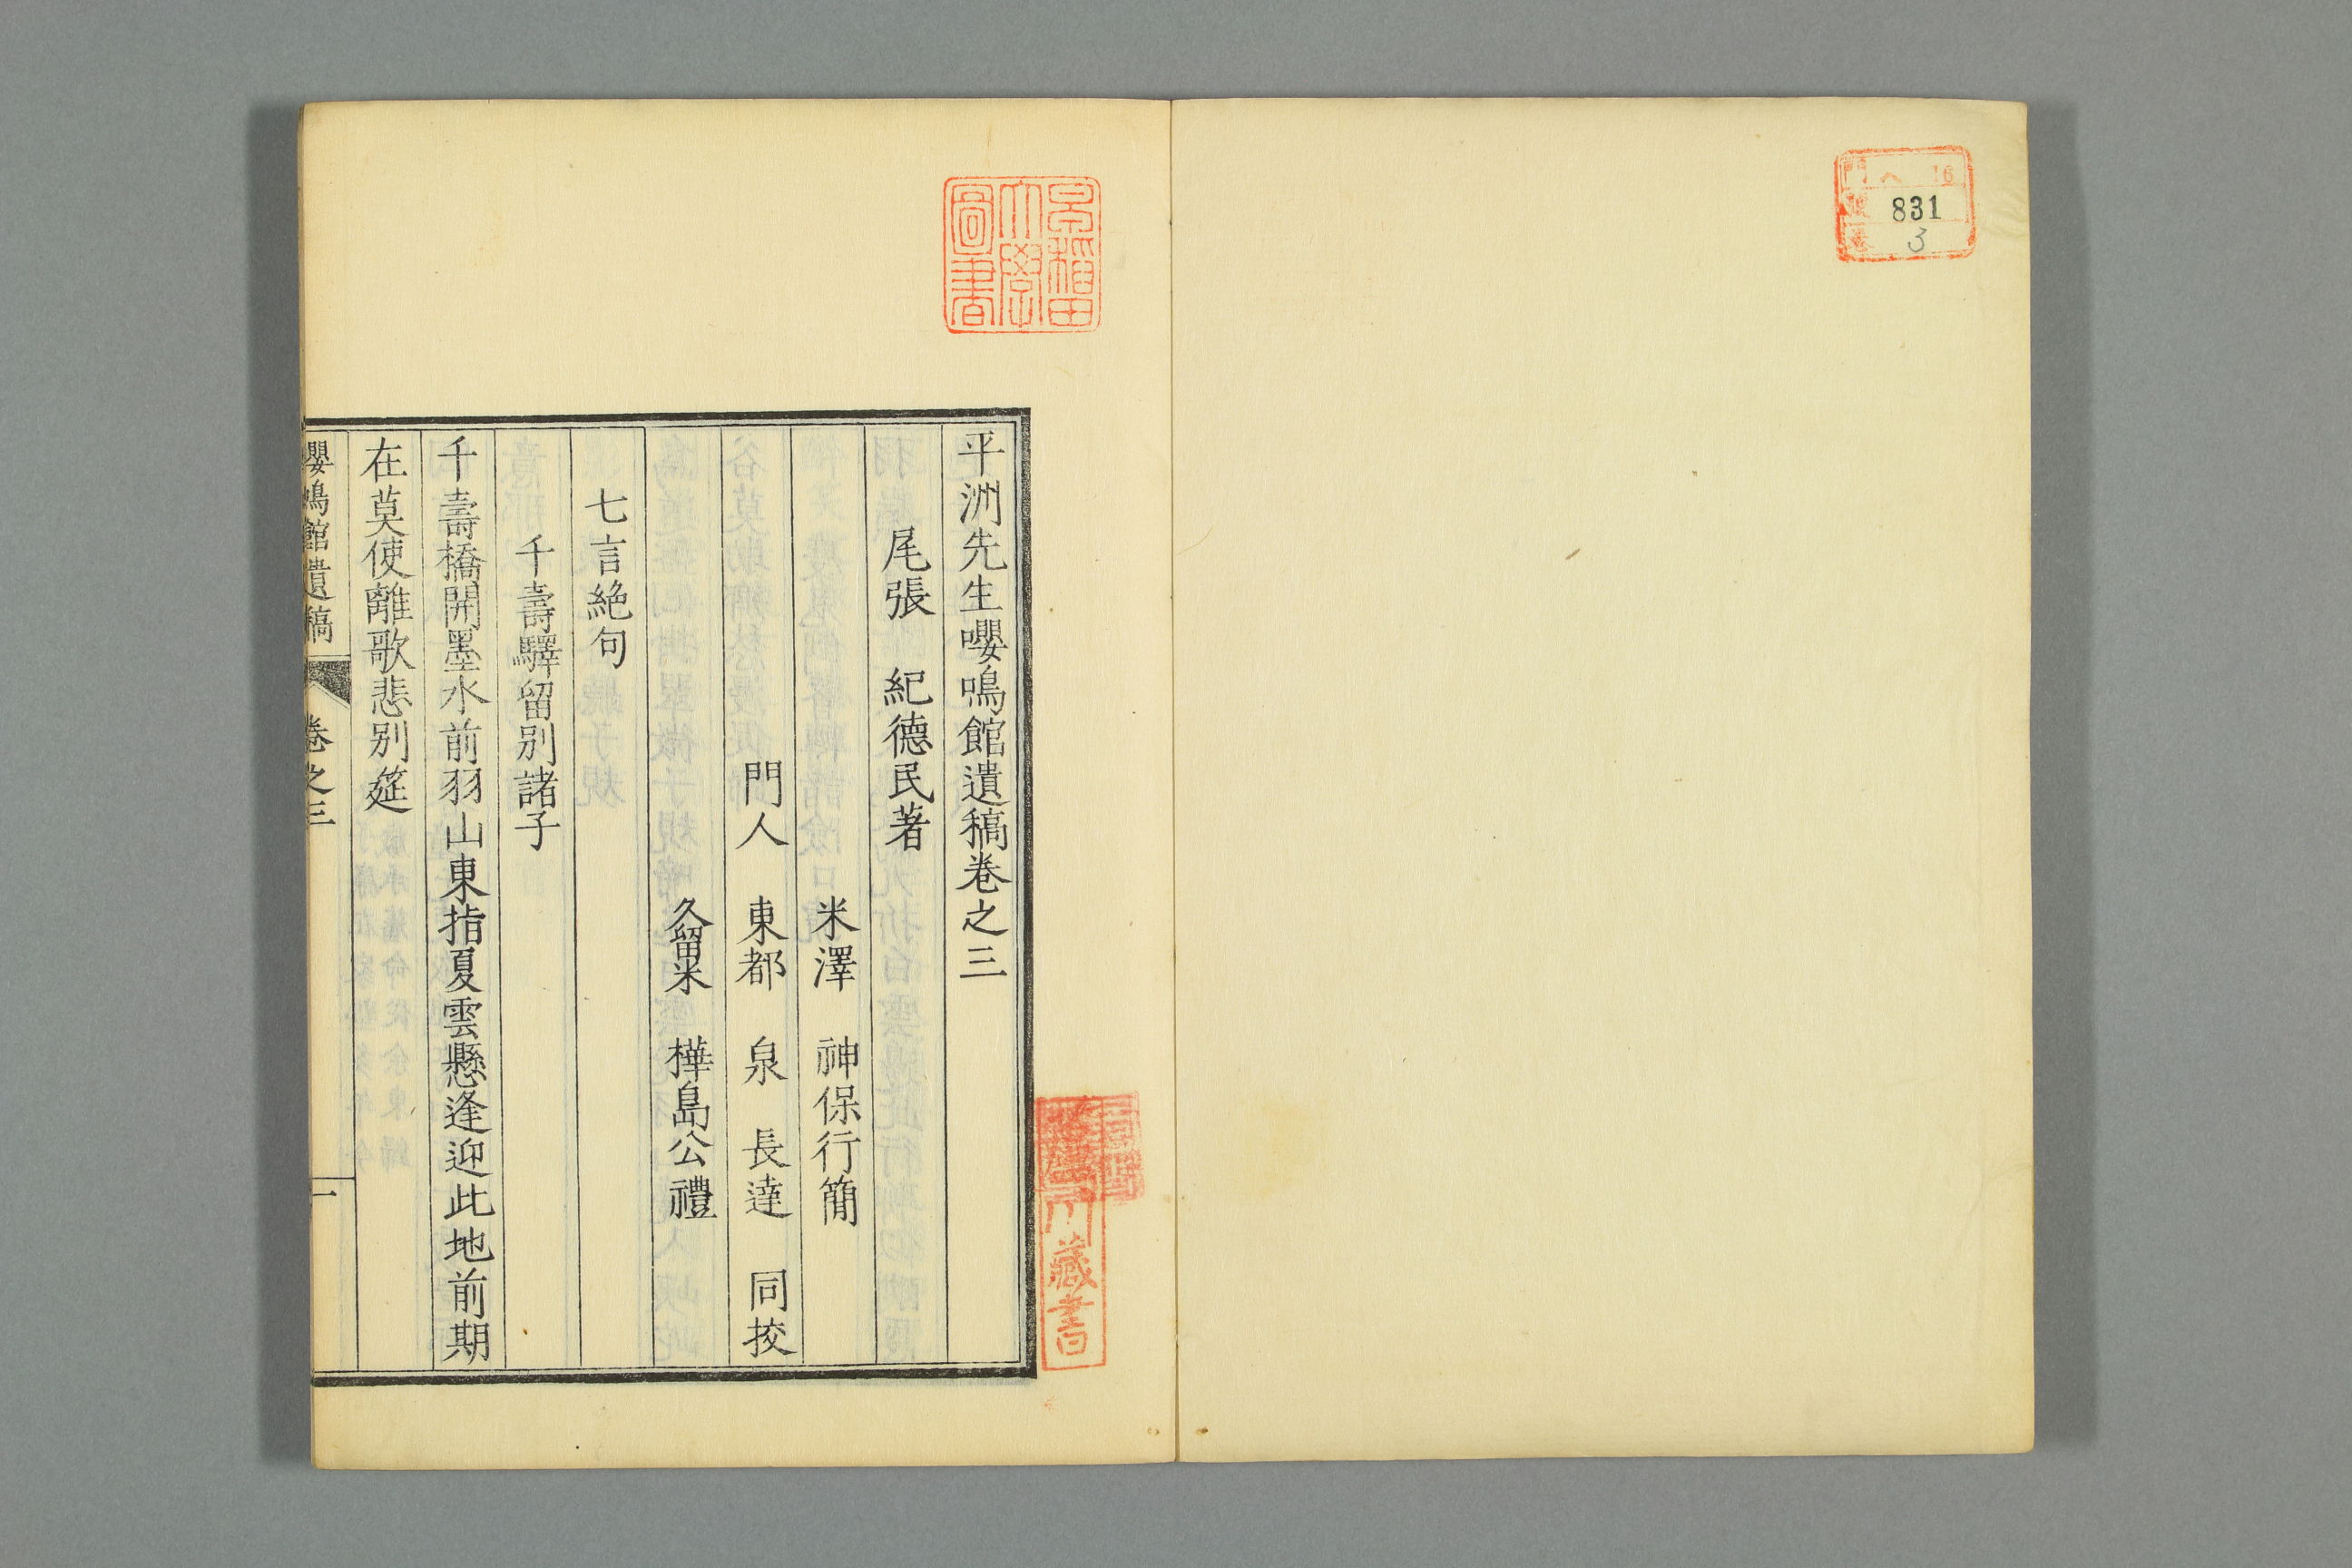 門 ヘ 16
號 831
卷 3
早稲田
大學
圖書
平洲先生嚶鳴館遺稿卷之三
尾張 紀德民著
米澤 神保行簡
門人 東都 泉 長達 同挍
久留米 樺島公禮
七言絶句
千壽驛留別諸子
千壽橋開墨水前羽山東指夏雲懸逢迎此地前期
在莫使離歌悲別筵
嚶鳴館遺稿 卷之三 一
藏書